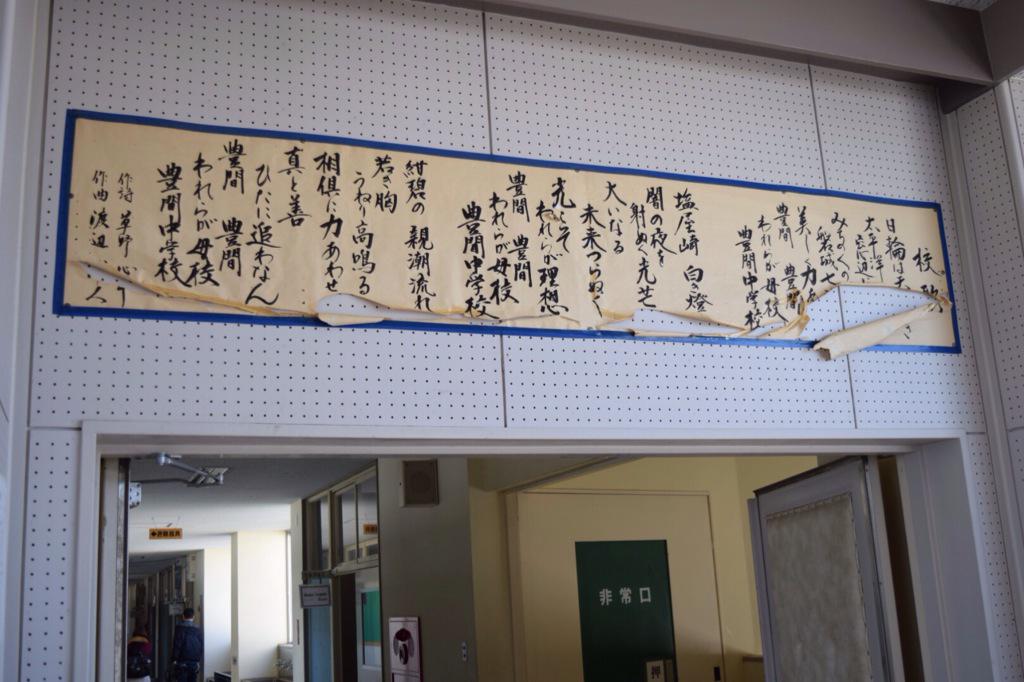 校歌
日輪は
太平洋
みちのくの
磐城七
美しく力
豊間 豊間
われらが母校
豊間中学校
塩屋崎 白き燈
闇の夜を
射ぬく光芒
大いなる
未来つらぬく
光こそ
われらが理想
豊間 豊間
われらが母校
豊間中学校
紺碧の 親潮流れ
若き胸
うねり高鳴る
相倶に力あわせ
真と善
ひたに追わなん
豊間 豊間
われらが母校
豊間中学校
作詩 草野心
作曲 渡辺
非常口
押